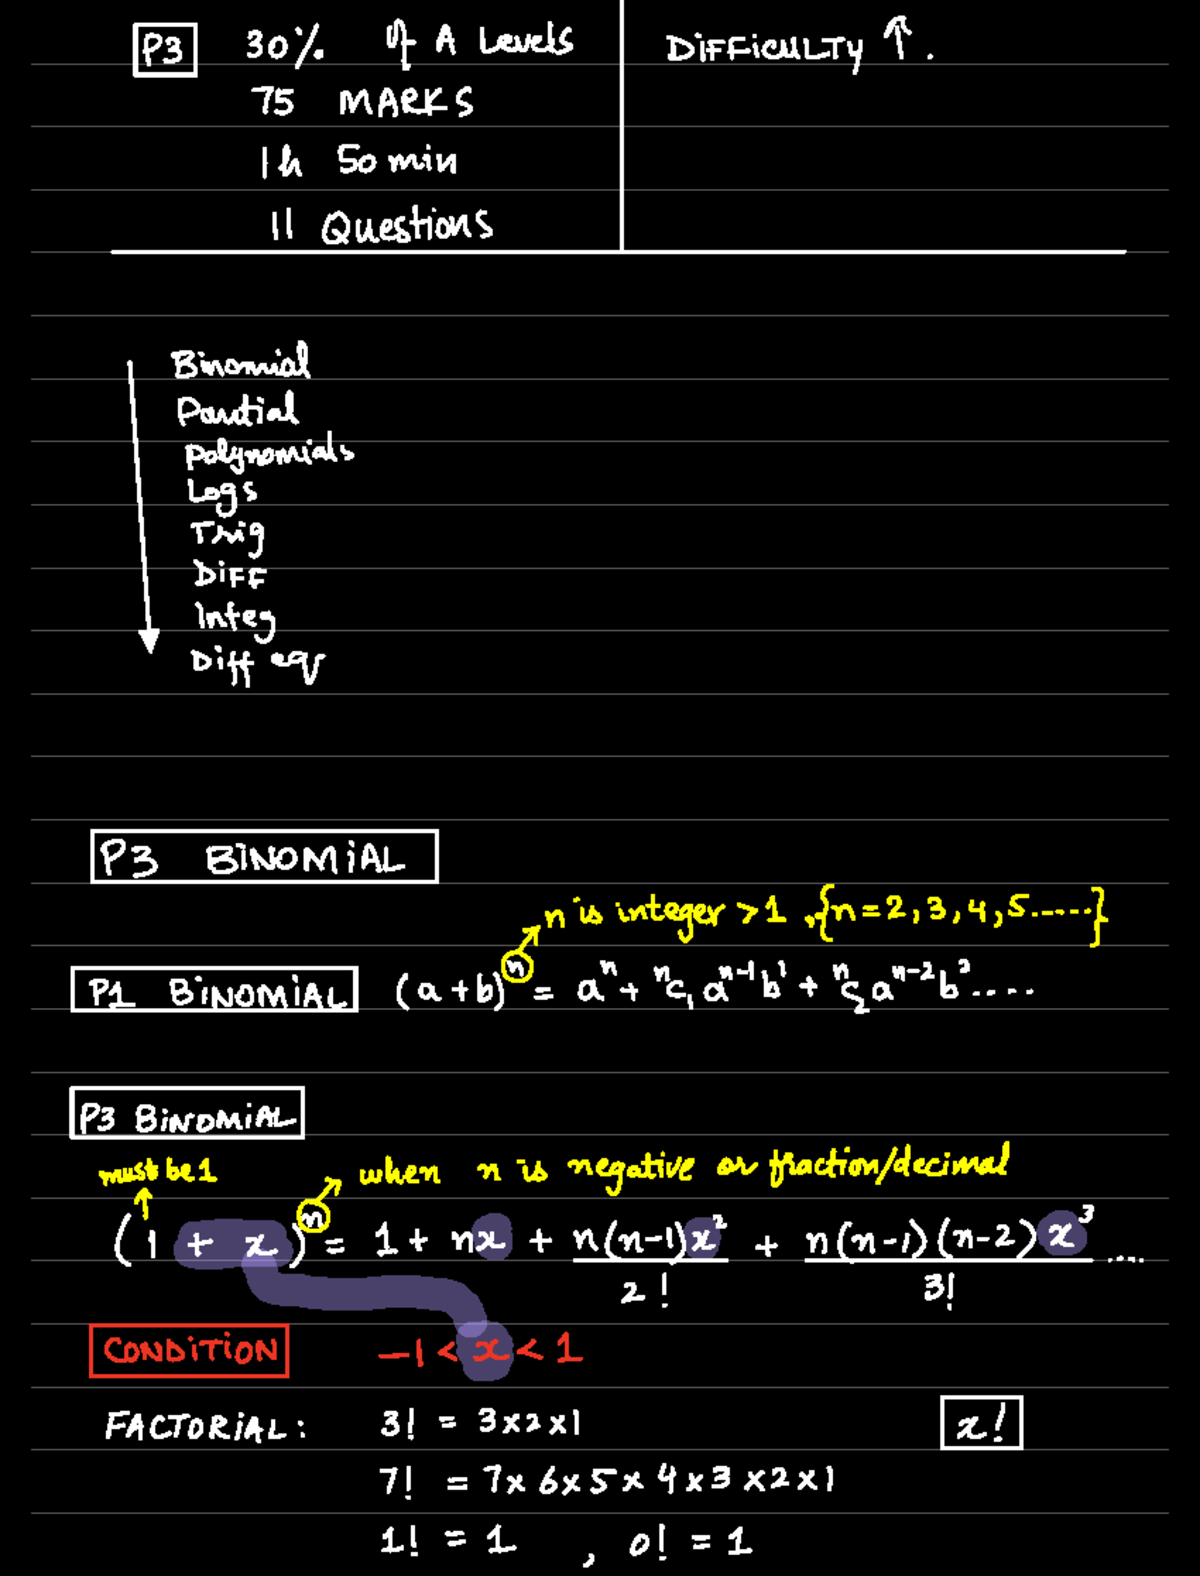 P3 30% of A Levels
75 MARKS
1h 50 min
11 Questions
DIFFICULTY ↑.
Binomial
Partial
Polynomials
Logs
Trig
DIFF
Integ
Diff eq
P3 BINOMIAL
n is integer > 1, {n = 2, 3, 4, 5......}
P1 BINOMIAL (a + b)ⁿ = aⁿ + ⁿC₁ aⁿ⁻¹ b¹ + ⁿC₂ aⁿ⁻² b² ....
P3 BINOMIAL
must be 1
when n is negative or fraction/decimal
(1 + x)ⁿ = 1 + nx + n(n-1)x²/2! + n(n-1)(n-2)x³/3! ....
CONDITION -1 < x < 1
FACTORIAL: 3! = 3x2x1
x!
7! = 7x6x5x4x3x2x1
1! = 1 , 0! = 1